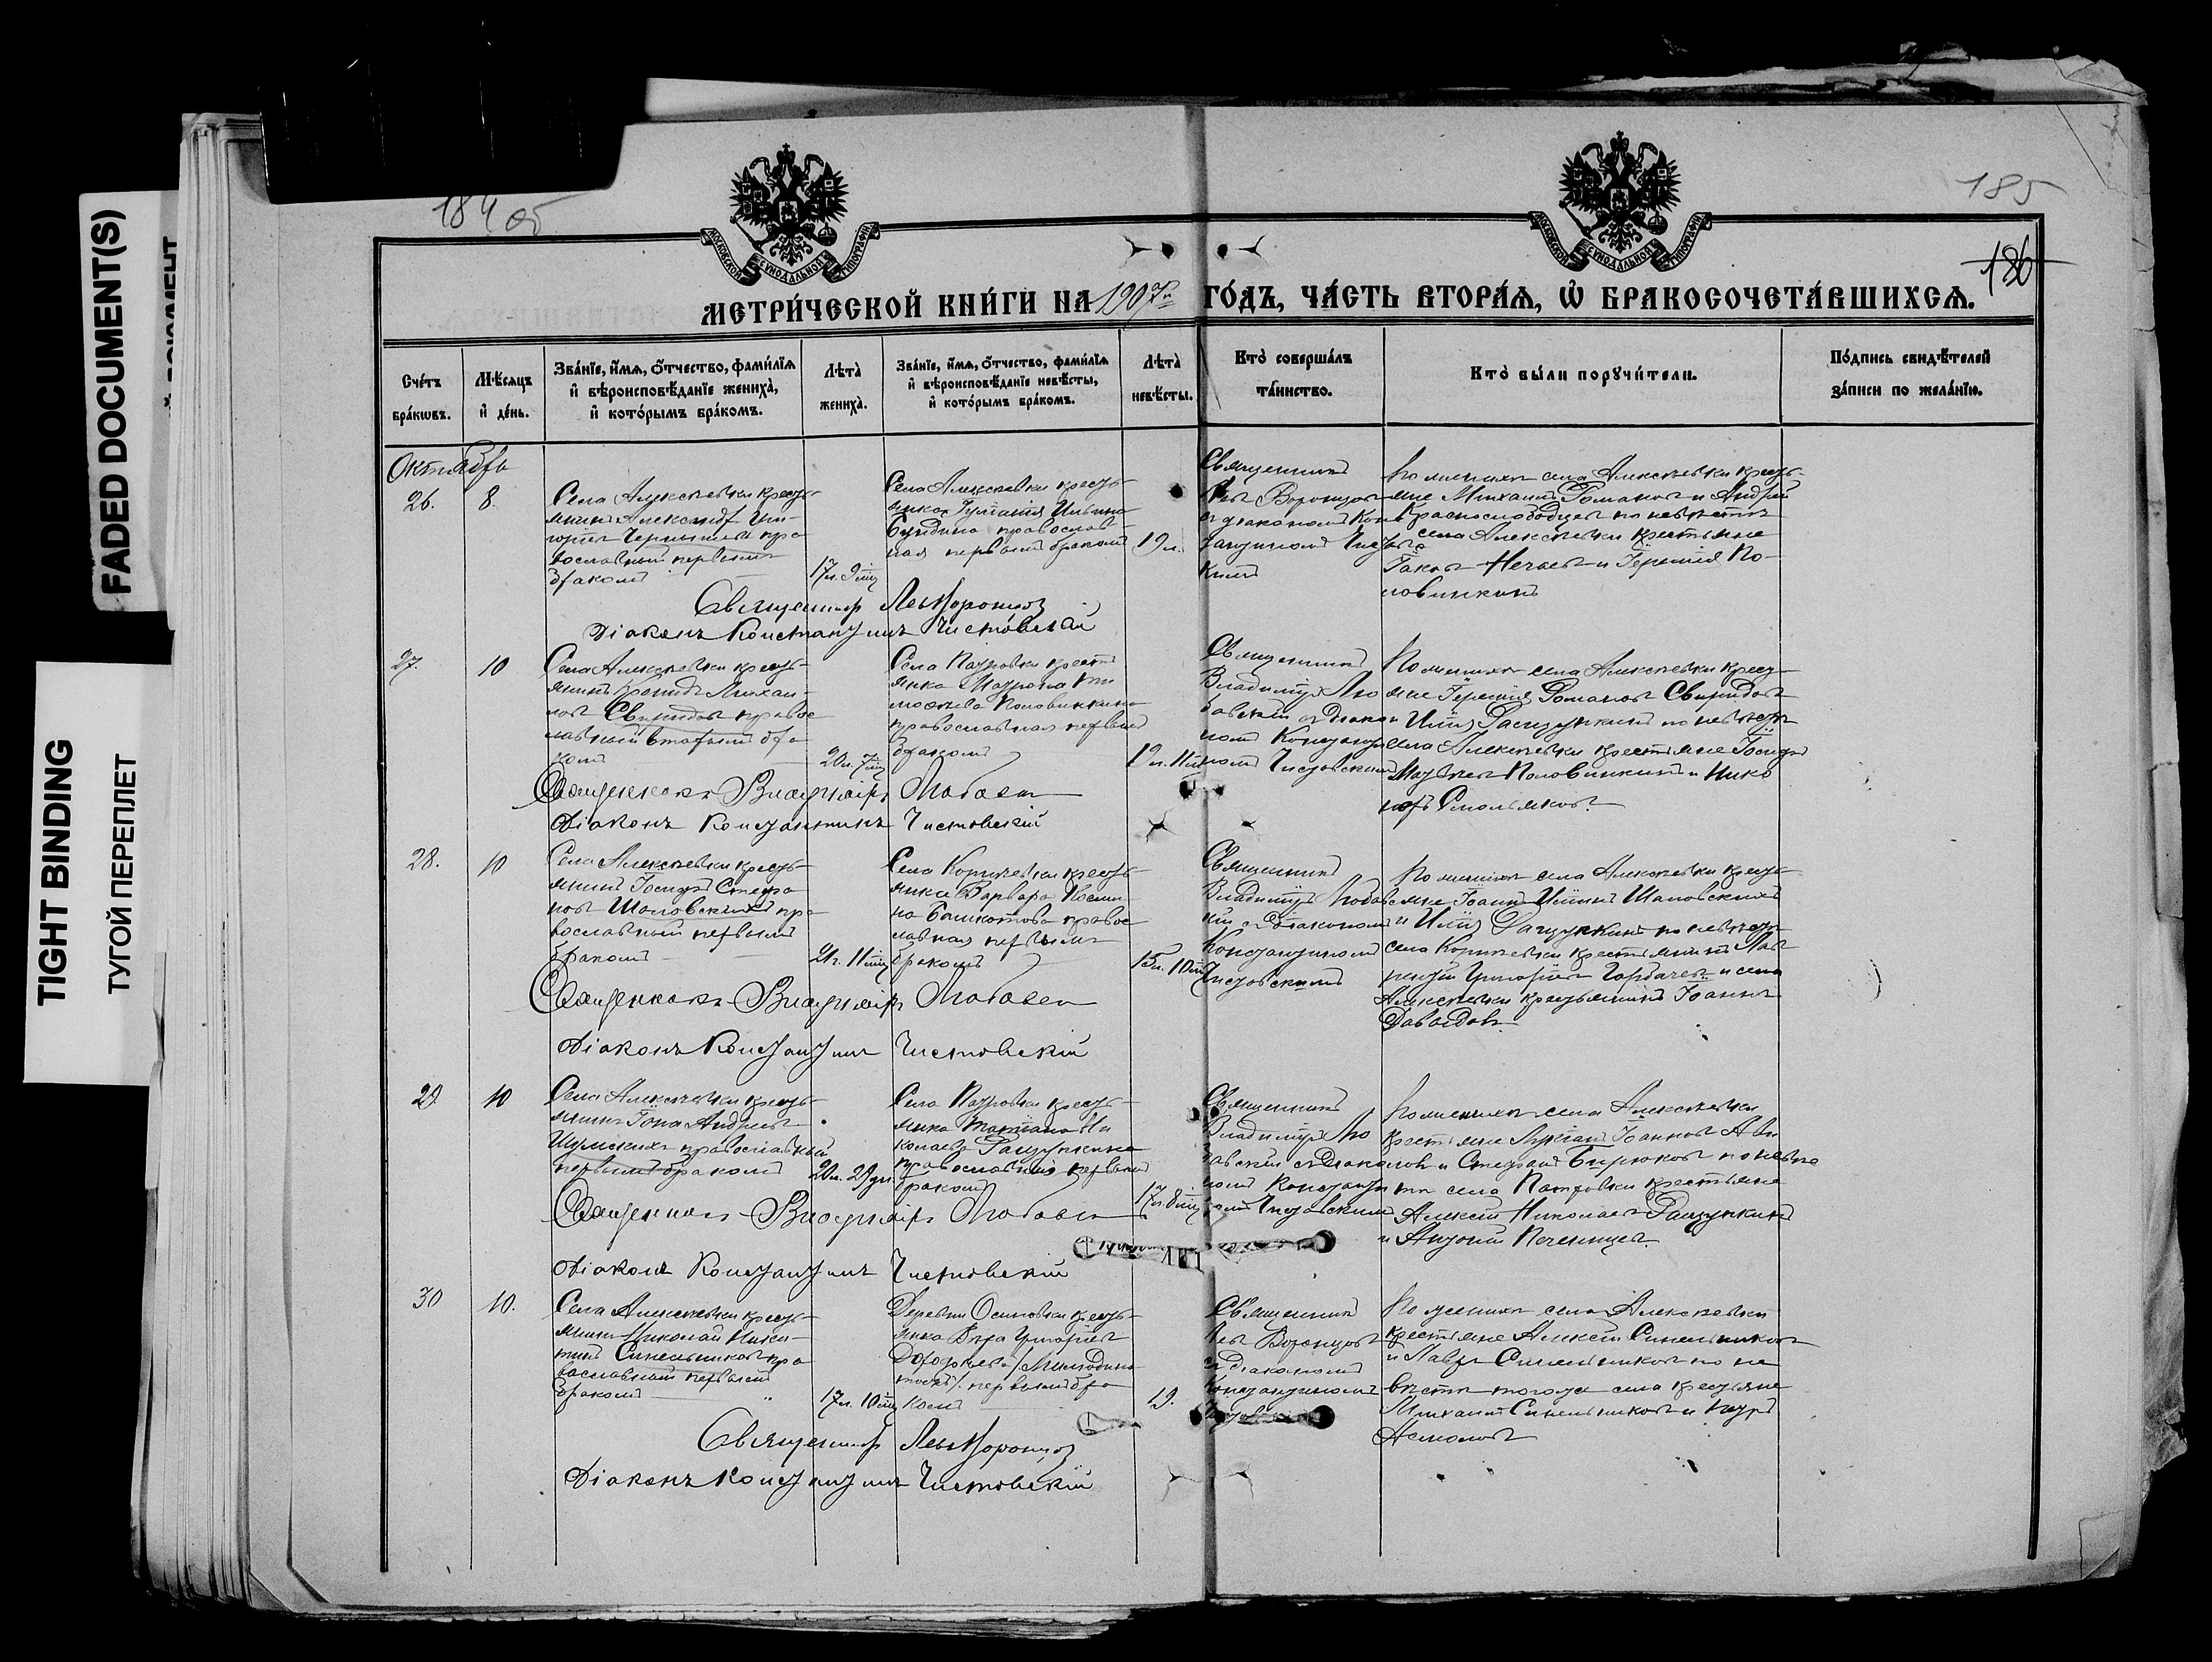 FADED DOCUMENT(S)
TIGHT BINDING
ТУГОЙ ПЕРЕПЛЕТ
184 об
185
186
МОСКОВСКОЙ СѴНОДАЛЬНОЙ ТИПОГРАФІИ
МОСКОВСКОЙ СѴНОДАЛЬНОЙ ТИПОГРАФІИ
МЕТРИ́ЧЕСКОЙ КНИ́ГИ НА 1907й ГО́ДЪ, ЧА́СТЬ ВТОРА́Ѧ, Ѽ БРАКОСОЧЕТА́ВШИХСѦ.
Сче́тъ бра́кωвъ.
Мѣ́сѧцъ и҆ де́нь.
Зва́нїе, и҆́мѧ, ѻ҆́тчество, фами́лїѧ и҆ вѣроисповѣ́данїе жениха̀, и҆ кото́рымъ бра́комъ.
Лѣта̀ жениха̀.
Зва́нїе, и҆́мѧ, ѻ҆́тчество, фами́лїѧ и҆ вѣроисповѣ́данїе невѣ́сты, и҆ кото́рымъ бра́комъ.
Лѣта̀ невѣ́сты.
Кто̀ соверша́лъ та́инство.
Кто̀ бы́ли порꙋчи́тели.
По́дпись свидѣ́телей за́писи по жела́нїю.
Октябрь
26.
8.
Села Алексѣевки кресть-
янинъ Александръ
православный первымъ
бракомъ
17 л. 9 мц
Села Алексѣевки кресть-
янка Ильина
православ-
ная первымъ бракомъ
19 л.
Священникъ
Левъ Воронцовъ
съ діакономъ Кон-
стантиномъ Чистов-
скимъ
По женихѣ села Алексѣевки кресть-
яне Михаилъ Романовъ и Андрей
Краснослободцевъ по невѣстѣ
села Алексѣевки крестьяне
Іаковъ Нечаевъ и Іеремія По-
ловинкинъ
Священникъ Левъ Воронцовъ
Діаконъ Константинъ Чистовскій
27.
10
Села Алексѣевки кресть-
янинъ Михаи-
ловъ Свиридовъ правос-
лавный вторымъ бра-
комъ
20 л. 7 мц
Села Петровки кресть-
янка Матрона Ти-
моѳеева Половинкина
православная первымъ
бракомъ
19 л. 11 мц
Священникъ
Владиміръ Лю-
бавскій съ діако-
номъ Константи-
номъ Чистовскимъ
По женихѣ села Алексѣевки кресть-
яне Іеремія Романовъ Свиридовъ
и Илія Ращупкинъ по невѣстѣ
села Алексѣевки крестьяне Іосифъ
Матвѣевъ Половинкинъ и Ника-
норъ Смольяковъ.
Священникъ Владиміръ Любавскій
Діаконъ Константинъ Чистовскій
28.
10
Села Алексѣевки кресть-
янинъ Іосифъ Стефа-
новъ Шаповскихъ пра-
вославный первымъ
бракомъ
21 г. 11 мц
Села Кореневки кресть-
янка Варвара Косми-
на Башкатова правос-
лавная первымъ
бракомъ
15 л. 10 мц
Священникъ
Владиміръ Любавс-
кій съ діакономъ
Константиномъ
Чистовскимъ
По женихѣ села Алексѣевки кресть-
яне Іоаннъ Шаповскихъ
и Илія Ращупкинъ по невѣстѣ
села Кореневки крестьянинъ Лав-
рентій Григорьевъ Горбачевъ и села
Алексѣевки крестьянинъ Іоаннъ
Давыдовъ.
Священникъ Владиміръ Любавскій
Діаконъ Константинъ Чистовскій
29
10
Села Алексѣевки кресть-
янинъ Іона Андреевъ
Шумскихъ православный
первымъ бракомъ
20 л. 29 дн.
Села Петровки кресть-
янка Татіана Ни-
колаева Ращупкина
православная первымъ
бракомъ
17 л. 8 мц
Священникъ
Владиміръ Лю-
бавскій съ діако-
номъ Константи-
номъ Чистовскимъ
По женихѣ села Алексѣевки
крестьяне Іоанновъ
и Стефанъ Бирюковъ по невѣс-
тѣ села Петровки крестьяне
Алексѣй Николаевъ Ращупкинъ
и Антоній Печенцевъ.
Священникъ Владиміръ Любавскій
Діаконъ Константинъ Чистовскій
30
10.
Села Алексѣевки кресть-
янинъ Николай Ники-
тинъ Синельниковъ пра-
вославный первымъ
бракомъ
17 л. 10 мц
Деревни Осиновки кресть-
янка Вѣра Григорьева
первымъ бра-
комъ
19.
Священникъ
Левъ Воронцовъ
съ діакономъ
Константиномъ
По женихѣ села Алексѣевки
крестьяне Алексѣй Синельниковъ
и Лавръ Синельниковъ по не-
вѣстѣ того же села крестьяне
Михаилъ Синельниковъ и Петръ
Асмоловъ
Священникъ Левъ Воронцовъ
Діаконъ Константинъ Чистовскій